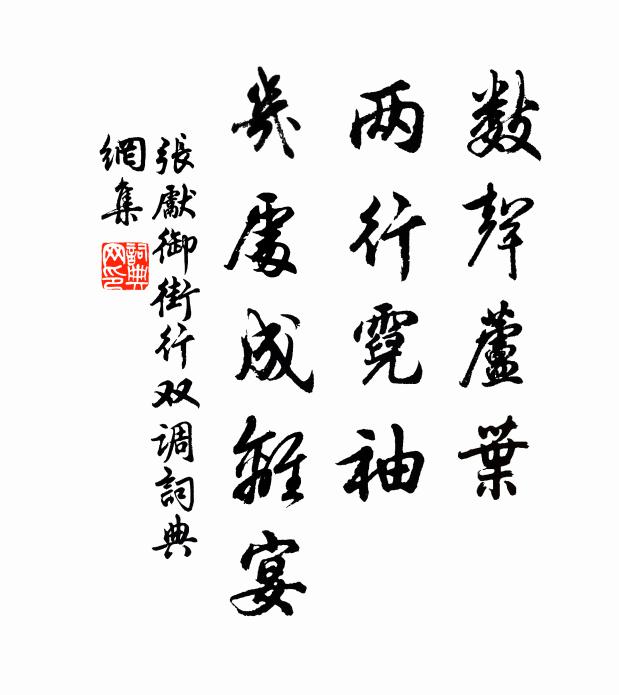 数聲蘆葉
两行霓袖
幾處成離宴
張獻御街行双调詞典
網集
詞典网印